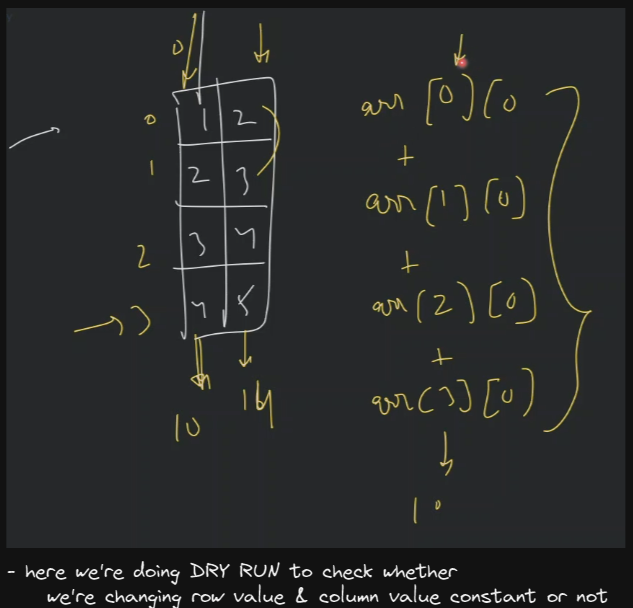 0
0 1 2
1 2 3
2 3 4
3 4 5
10 14
arr [0] [0
+
arr [1] [0]
+
arr [2] [0]
+
arr [3] [0]
10
- here we're doing DRY RUN to check whether
we're changing row value & column value constant or not